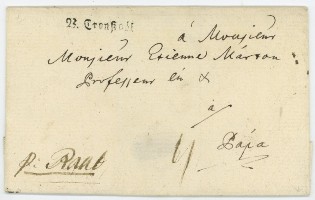 V. Cronstadt
à Monsieur
Monsieur Etienne Márton
Professeur en &
à
Pápa
p: Raab